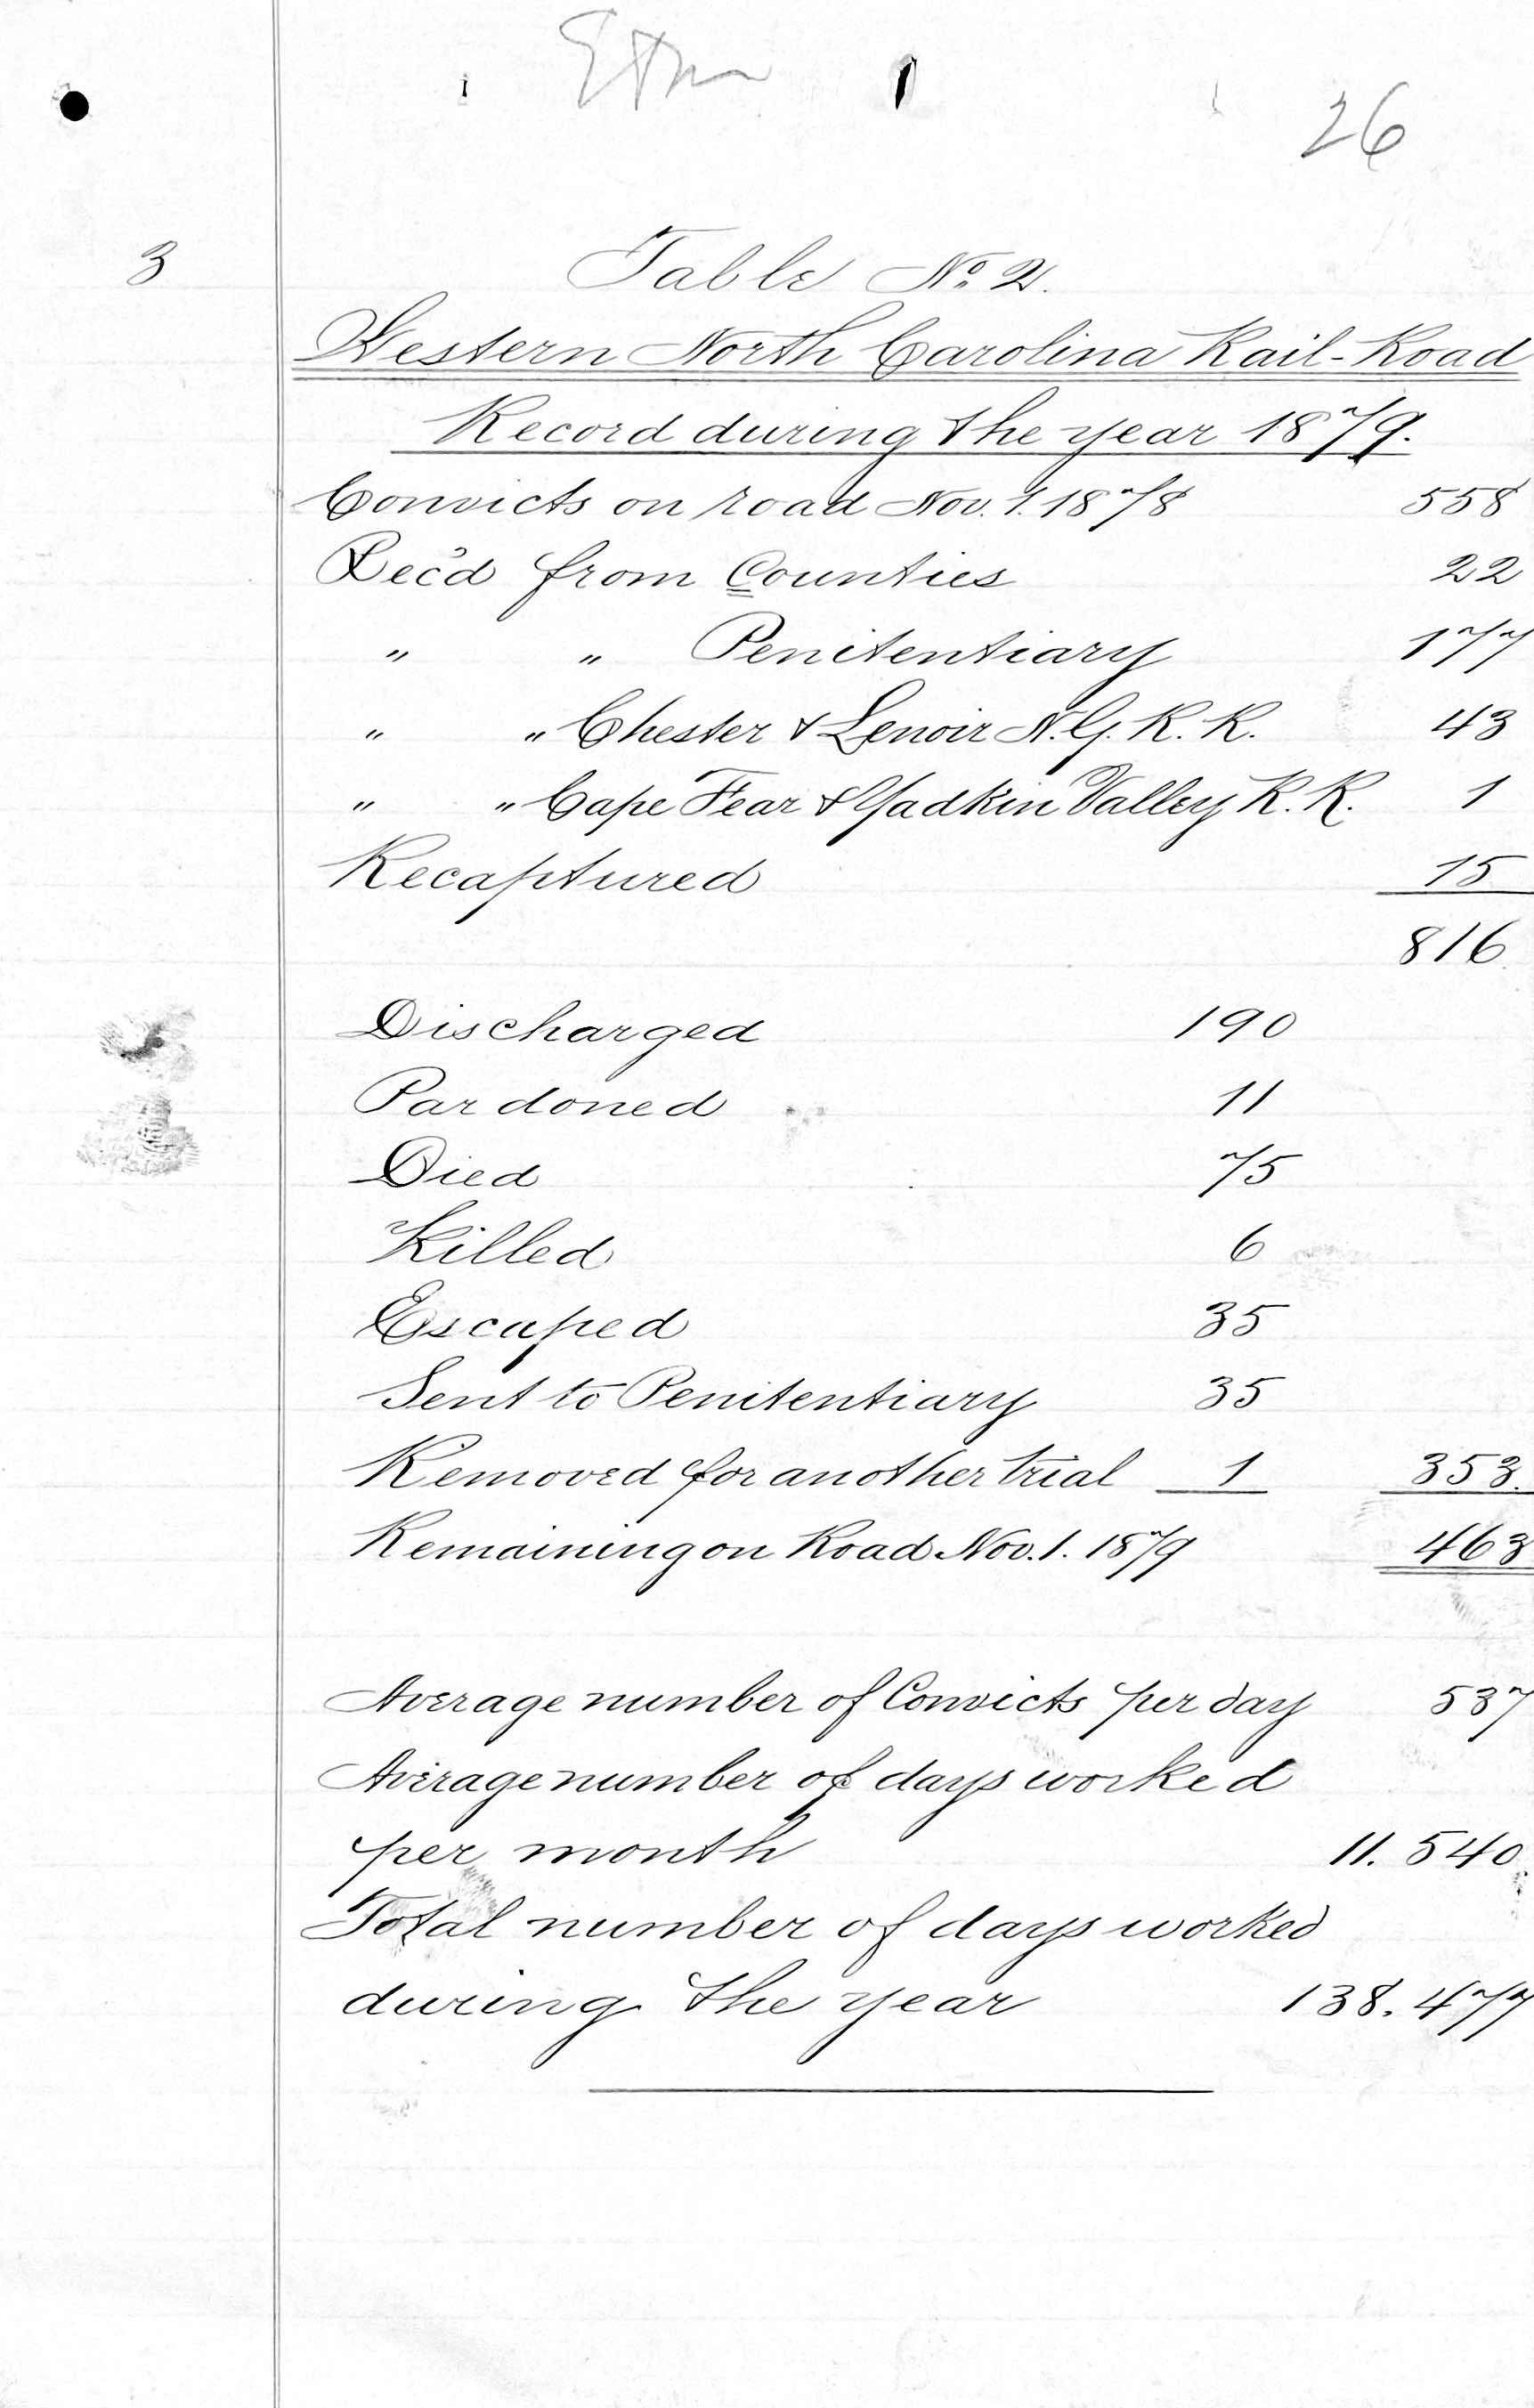 26
3
Table No. 2.
Western North Carolina Rail-Road
Record during the year 1879.
Convicts on road Nov. 1. 1878 558
Rec'd from Counties 22
" " Penitentiary 177
" " Chester & Lenoir N. G. R. R. 43
" " Cape Fear & Yadkin Valley R. R. 1
Recaptured 15
816
Discharged 190
Pardoned 11
Died 75
Killed 6
Escaped 35
Sent to Penitentiary 35
Removed for another trial 1 353.
Remaining on Road Nov. 1. 1879 463
Average number of Convicts per day 537
Average number of days worked
per month 11. 540
Total number of days worked
during the year 138. 477